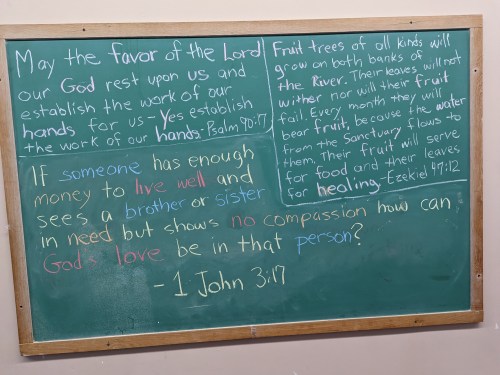 May the favor of the Lord
our God rest upon us and
establish the work of our
hands for us - Yes establish
the work of our hands - Psalm 90:17
Fruit trees of all kinds will
grow on both banks of
the River. Their leaves will not
wither nor will their fruit
fail. Every month they will
bear fruit, because the water
from the Sanctuary flows to
them. Their fruit will serve
for food and their leaves
for healing - Ezekiel 47:12
If someone has enough
money to live well and
sees a brother or sister
in need but shows no compassion how can
God's love be in that person?
- 1 John 3:17